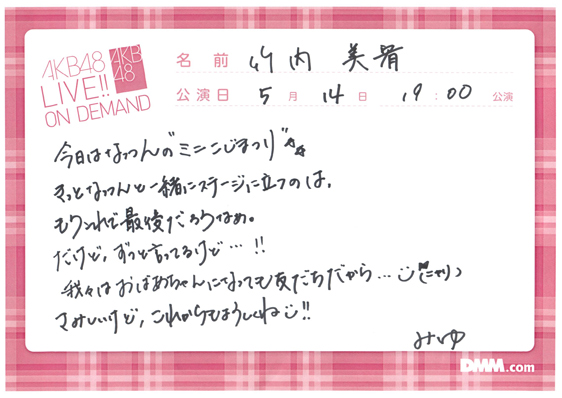 AKB48
LIVE!!
ON DEMAND
AKB
48
名前 竹内 美宥
公演日 5月 14日 19:00 公演
今日はなつんの"ミニこじまつり"
きっとなつんと一緒にステージに立つのは、
もうこれで最後だろうなぁ。
だけど、ずっと言ってるけど…!!
我々はおばあちゃんになっても友だちだから…(ニヤリ)
さみしいけど、これからもよろしくね!!
みゆ
DMM.com